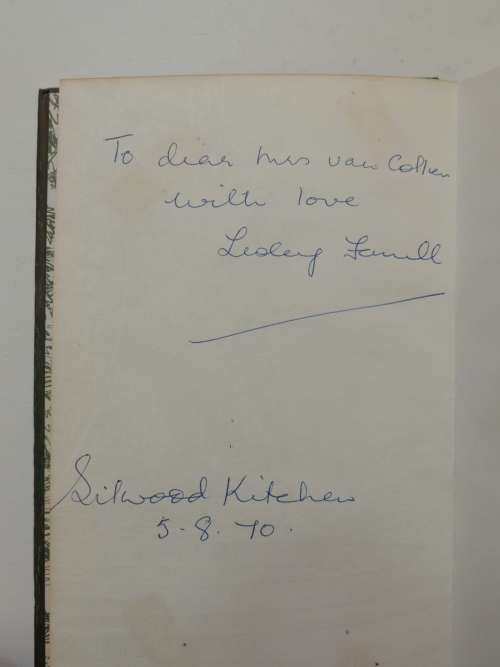 To dear Mrs van Collen
with love
Lesley Farrell
Silwood Kitchen
5-8.70.